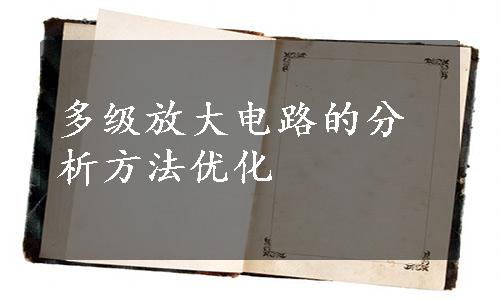 多级放大电路的分
析方法优化